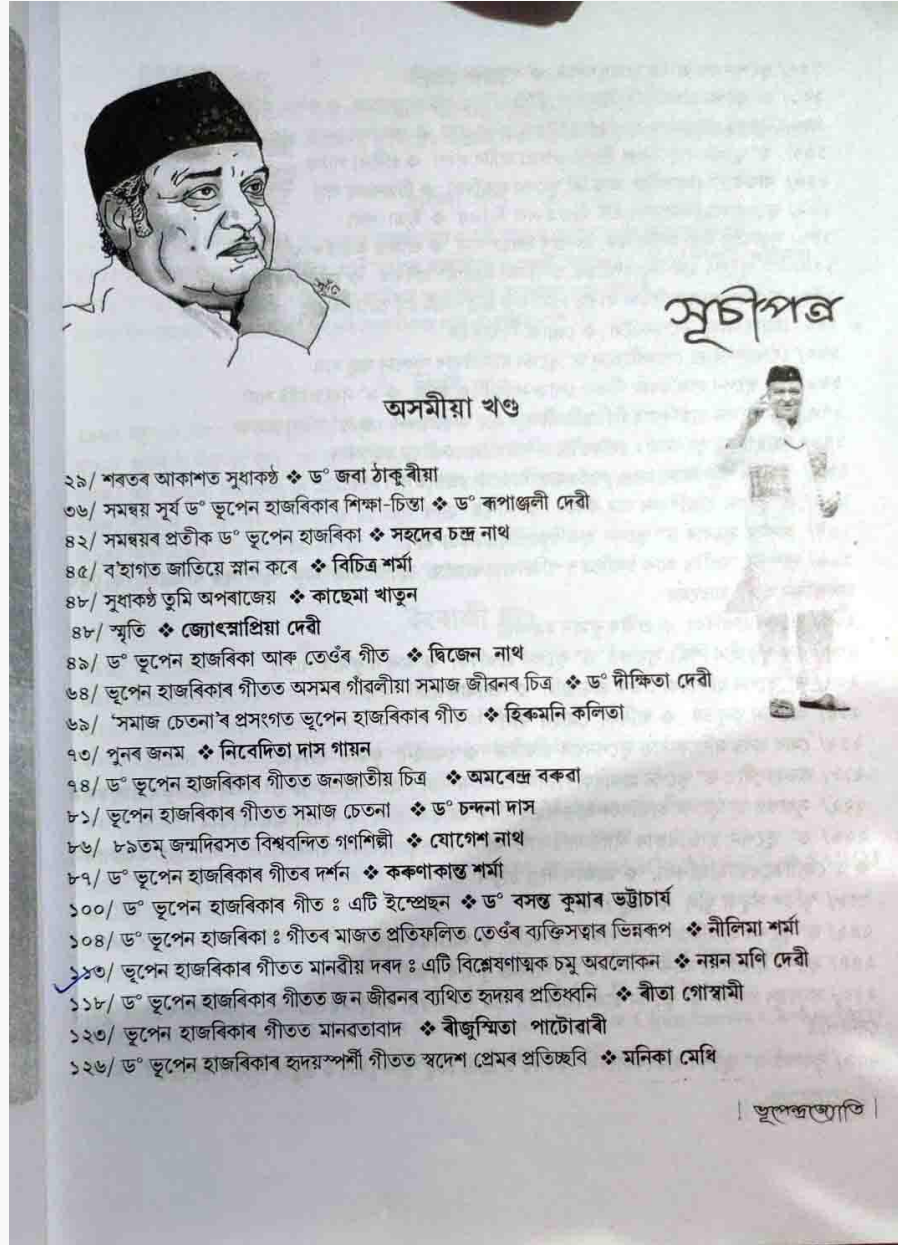 সূচীপত্ৰ
অসমীয়া খণ্ড
২৯/ শৰতৰ আকাশত সুধাকণ্ঠ ❖ ড° জবা ঠাকুৰীয়া
৩৬/ সমন্বয় সূৰ্য ড° ভূপেন হাজৰিকাৰ শিক্ষা-চিন্তা ❖ ড° ৰূপাঞ্জলী দেৱী
৪২/ সমন্বয়ৰ প্ৰতীক ড° ভূপেন হাজৰিকা ❖ সহদেৱ চন্দ্ৰ নাথ
৪৫/ ব'হাগত জাতিয়ে স্নান কৰে ❖ বিচিত্ৰ শৰ্মা
৪৮/ সুধাকণ্ঠ তুমি অপৰাজেয় ❖ কাছেমা খাতুন
৪৮/ স্মৃতি ❖ জ্যোৎস্নাপ্ৰিয়া দেৱী
৪৯/ ড° ভূপেন হাজৰিকা আৰু তেওঁৰ গীত ❖ দ্বিজেন নাথ
৬৪/ ভূপেন হাজৰিকাৰ গীতত অসমৰ গাঁৱলীয়া সমাজ জীৱনৰ চিত্ৰ ❖ ড° দীক্ষিতা দেৱী
৬৯/ 'সমাজ চেতনা'ৰ প্ৰসংগত ভূপেন হাজৰিকাৰ গীত ❖ হিৰুমনি কলিতা
৭৩/ পুনৰ জনম ❖ নিবেদিতা দাস গায়ন
৭৪/ ড° ভূপেন হাজৰিকাৰ গীতত জনজাতীয় চিত্ৰ ❖ অমৰেন্দ্ৰ বৰুৱা
৮১/ ভূপেন হাজৰিকাৰ গীতত সমাজ চেতনা ❖ ড° চন্দনা দাস
৮৬/ ৮৯তম্ জন্মদিৱসত বিশ্ববন্দিত গণশিল্পী ❖ যোগেশ নাথ
৮৭/ ড° ভূপেন হাজৰিকাৰ গীতৰ দৰ্শন ❖ কৰুণাকান্ত শৰ্মা
১০০/ ড° ভূপেন হাজৰিকাৰ গীত : এটি ইম্প্ৰেছন ❖ ড° বসন্ত কুমাৰ ভট্টাচাৰ্য
১০৪/ ড° ভূপেন হাজৰিকা : গীতৰ মাজত প্ৰতিফলিত তেওঁৰ ব্যক্তিসত্বাৰ ভিন্নৰূপ ❖ নীলিমা শৰ্মা
১১৩/ ভূপেন হাজৰিকাৰ গীতত মানৱীয় দৰদ : এটি বিশ্লেষণাত্মক চমু অৱলোকন ❖ নয়ন মণি দেৱী
১১৮/ ড° ভূপেন হাজৰিকাৰ গীতত জন জীৱনৰ ব্যথিত হৃদয়ৰ প্ৰতিধ্বনি ❖ ৰীতা গোস্বামী
১২৩/ ভূপেন হাজৰিকাৰ গীতত মানৱতাবাদ ❖ ৰীজুস্মিতা পাটোৱাৰী
১২৬/ ড° ভূপেন হাজৰিকাৰ হৃদয়স্পৰ্শী গীতত স্বদেশ প্ৰেমৰ প্ৰতিচ্ছবি ❖ মনিকা মেধি
| ভূপেন্দ্ৰজ্যোতি |